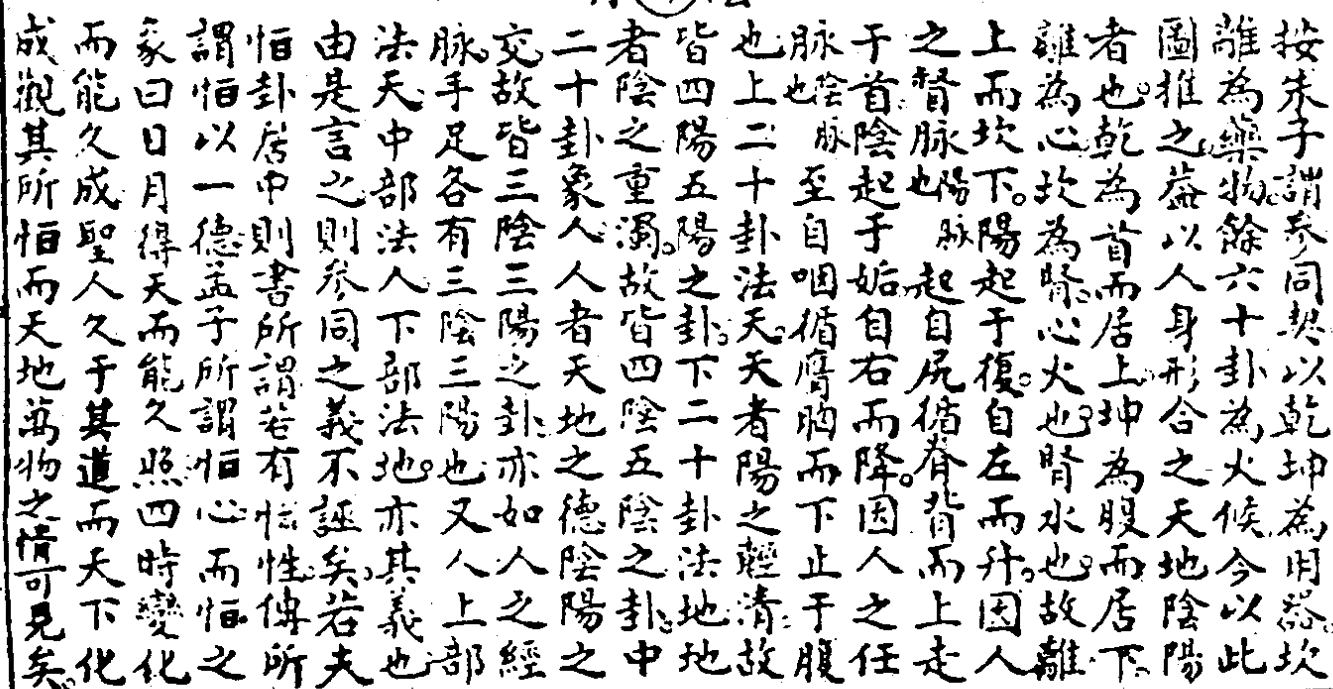 按朱子謂參同契以乾坤為用器坎
離為藥物餘六十卦為火候今以此
圖推之葢以人身形合之天地陰陽
者也乾為首而居上坤為腹而居下
離為心坎為腎心火也腎水也故離
上而坎下陽起于復自左而升因人
之督脉也陽脉起自尻循脊背而上走
于首陰起于姤自右而降因人之任
脉也陰脉至自咽循膺胸而下止于腹
也上二十卦法天天者陽之輕清故
皆四陽五陽之卦下二十卦法地地
者陰之重濁故皆四陰五陰之卦中
二十卦象人人者天地之德陰陽之
交故皆三陰三陽之卦亦如人之經
脉手足各有三陰三陽也又人上部
法天中部法人下部法地亦其義也
由是言之則參同之義不誣矣若夫
恒卦居中則書所謂若有恒性傳所
謂恒以一德孟子所謂恒心而恒之
彖曰日月得天而能久照四時變化
而能久成聖人久于其道而天下化
成觀其所恒而天地萬物之情可見矣